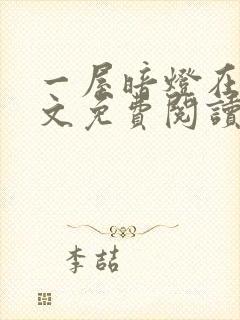 一屋暗燈在
文免費閱讀
李喆